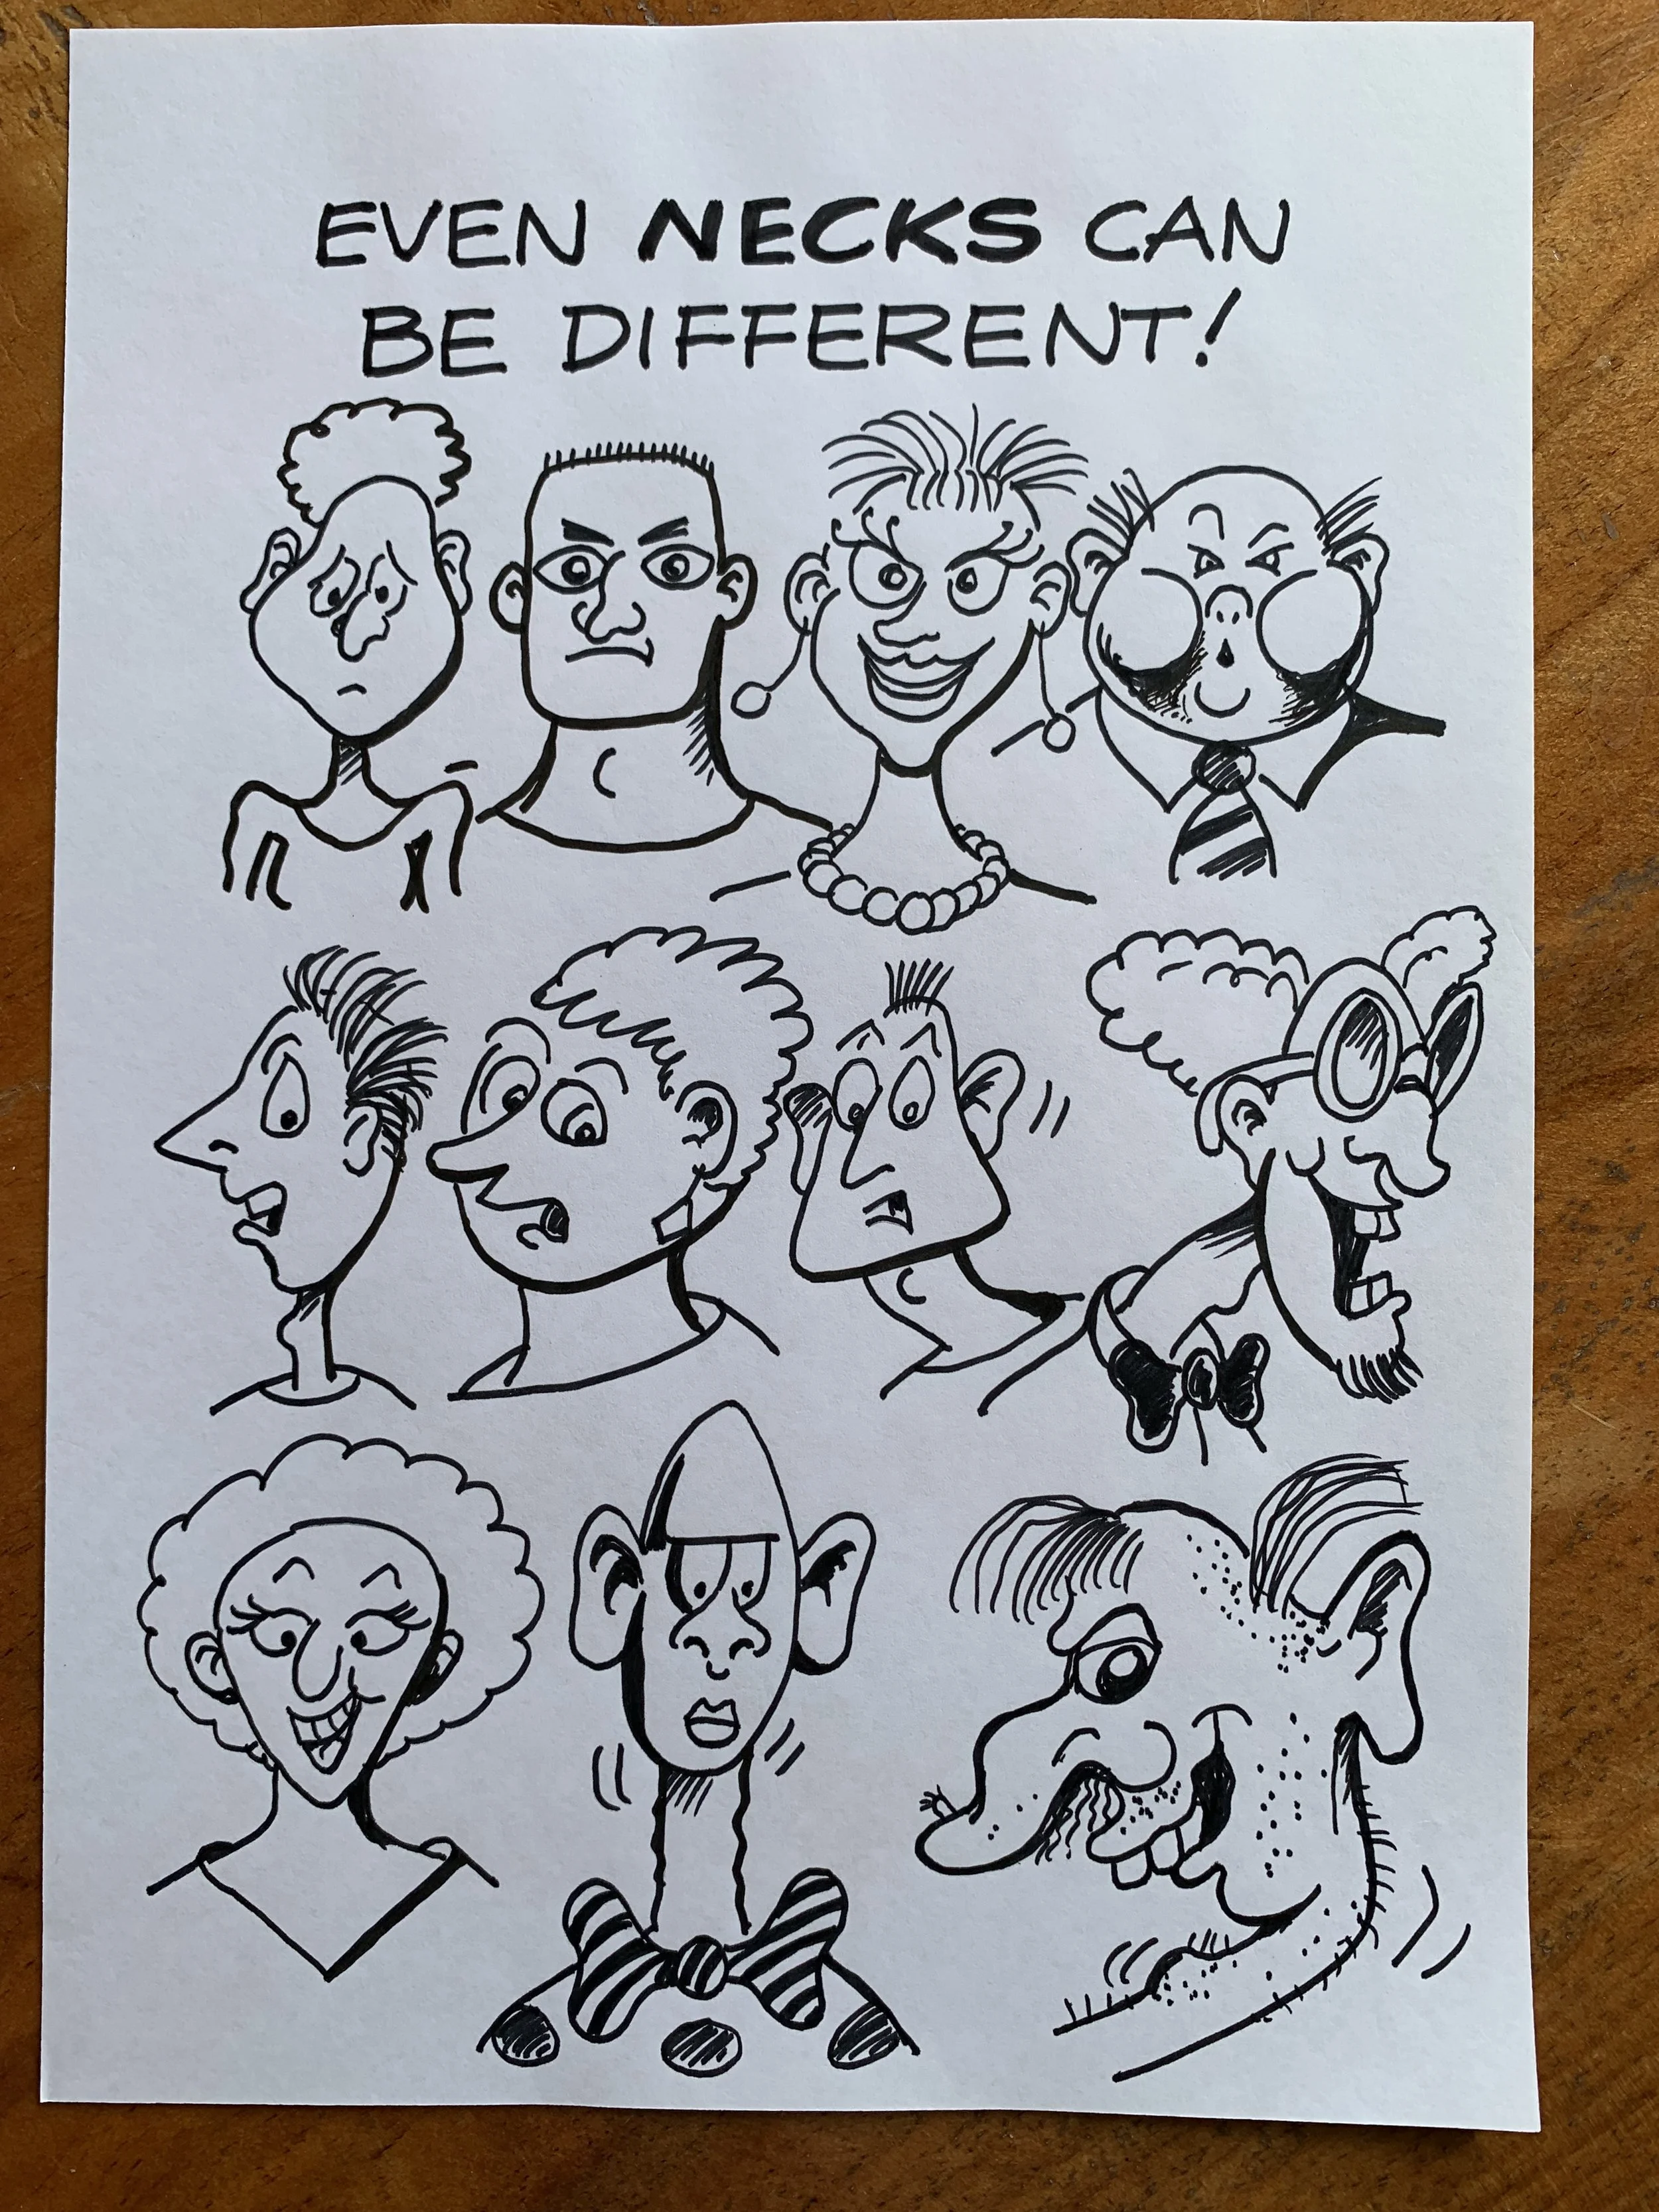 EVEN NECKS CAN
BE DIFFERENT!